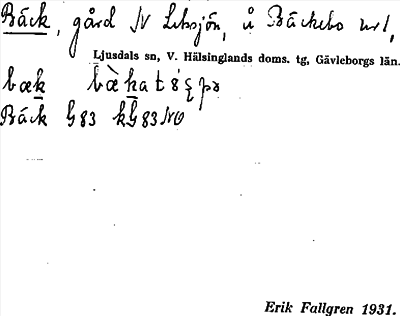 Bäck, gård N Letsjön, å Bäckebo nr 1,
Ljusdals sn, V. Hälsinglands doms. tg, Gävleborgs län.
bæk
Bäck G 83 kG 83 NO
Erik Fallgren 1931.